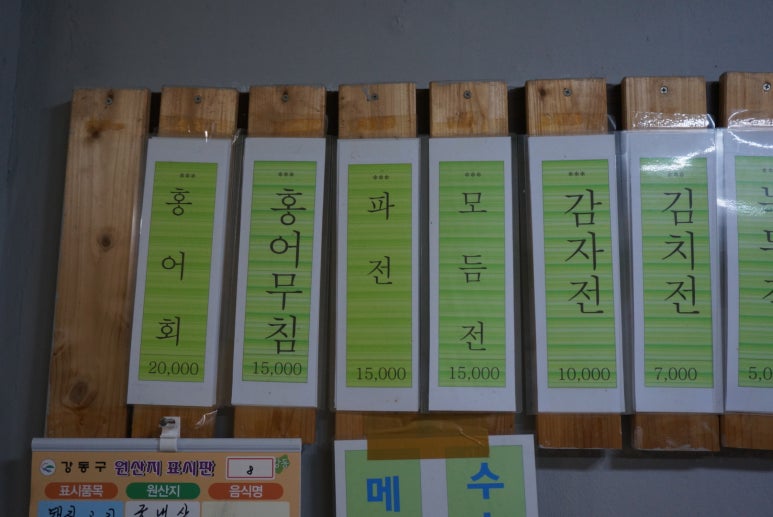 홍어회
20,000
홍어무침
15,000
파전
15,000
모듬전
15,000
감자전
10,000
김치전
7,000
강동구 원산지 표시판
표시품목 원산지 음식명
국내산
메
수